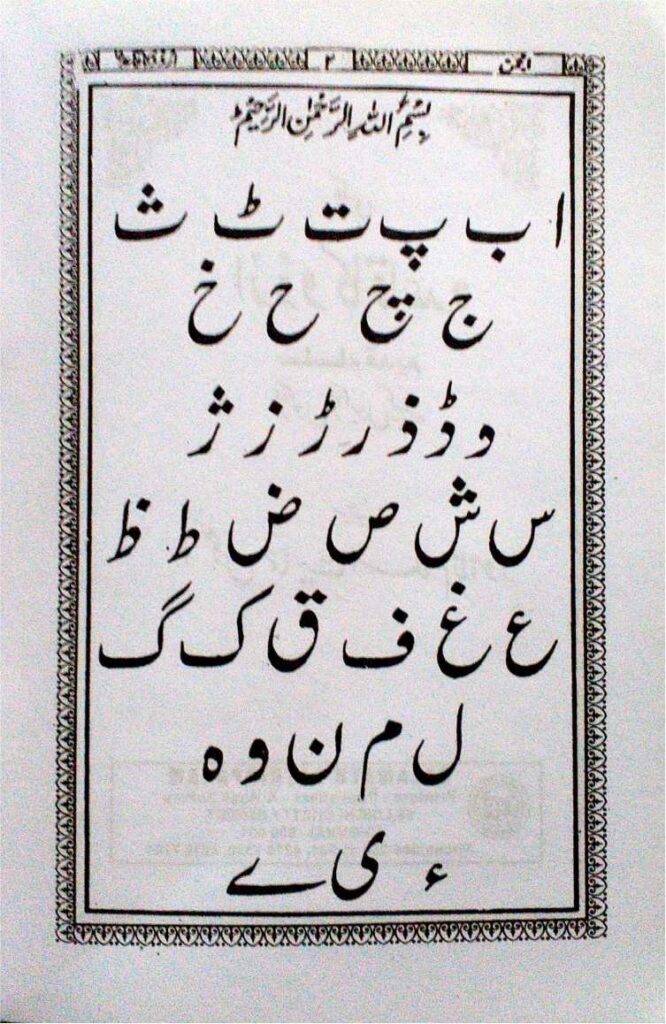 انجمن ۲
بِسْمِ اللهِ الرَّحْمٰنِ الرَّحِیْمِ
ا ب پ ت ٹ ث
ج چ ح خ
د ڈ ذ ر ڑ ز ژ
س ش ص ض ط ظ
ع غ ف ق ک گ
ل م ن و ہ
ء ی ے